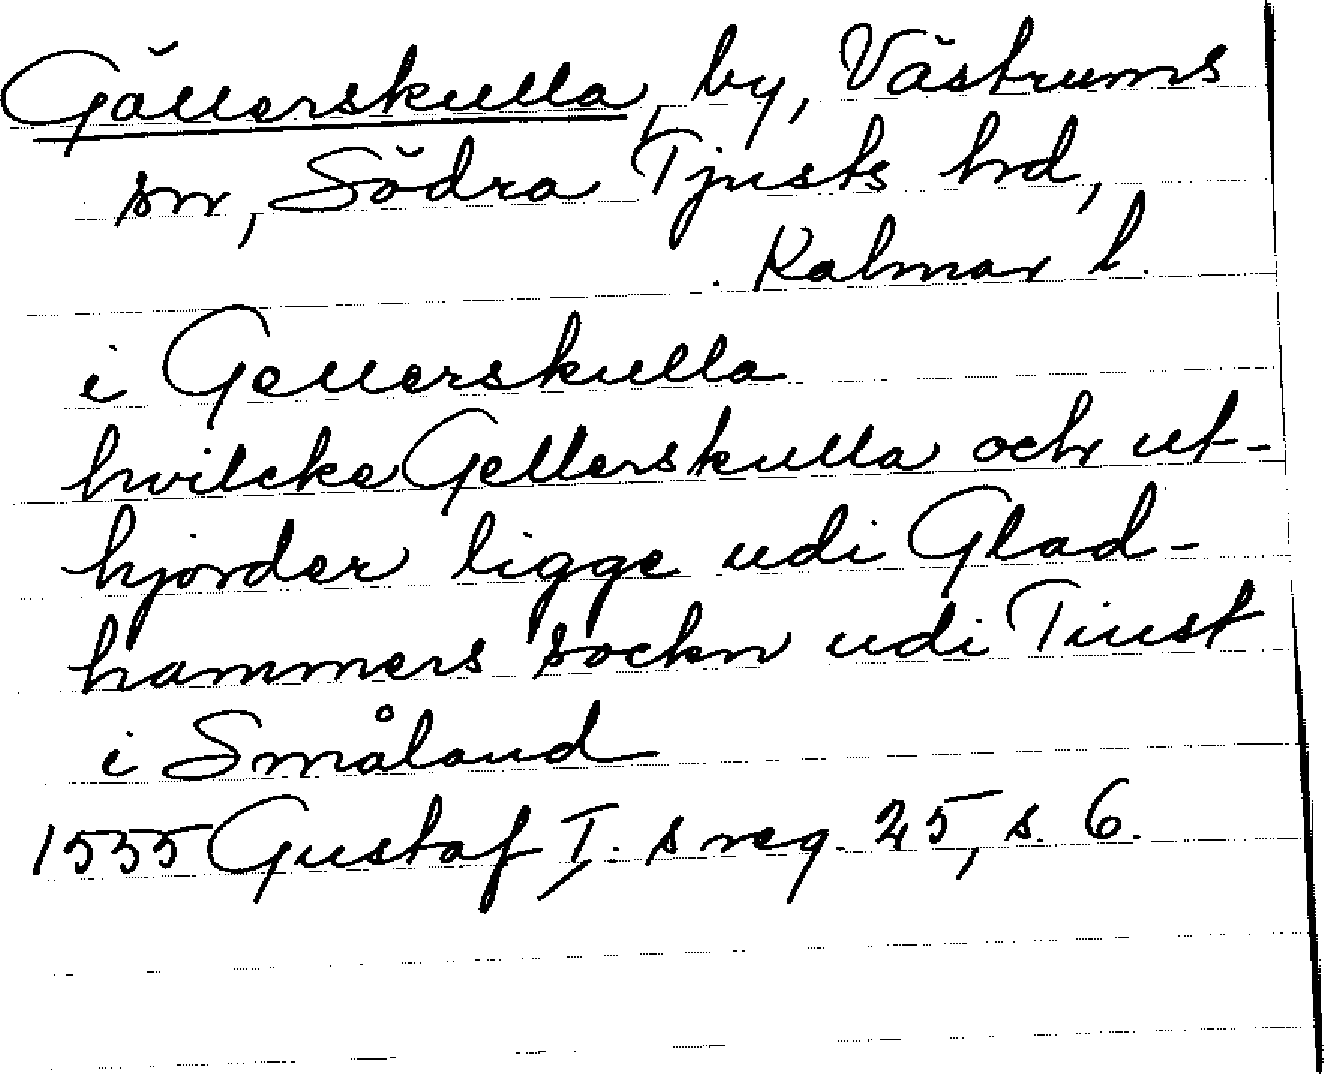 Gällerskulla, by, Västrums
sn, Södra Tjusts hd,
Kalmar l.
i Gellerskulla
hvilcke Gellerskulla och ut-
hjorder ligge udi Glad-
hammers sockn udi Tiust
i Småland
1535 Gustaf I. s reg. 25, s. 6.